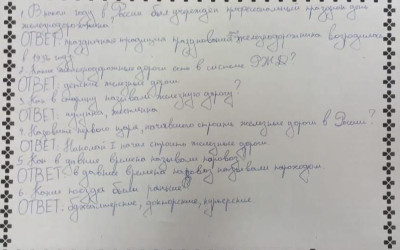 1. В каком году в России был учрежден профессиональный праздник день
железнодорожника?
ОТВЕТ: праздничная традиция празднования железнодорожника возродилась
в 1936 году
2. Какие железнодорожные дороги есть в системе РЖД?
ОТВЕТ: детские железные дороги
3. Как в старину называли железную дорогу?
ОТВЕТ: чугунка,
4. Назовите первого царя, начавшего строить железные дороги в России?
ОТВЕТ: Николай I начал строить железные дороги
5. Как в давние времена называли паровоз?
ОТВЕТ: в давние времена паровоз называли пароходом.
6. Какие поезда были раньше?
ОТВЕТ: